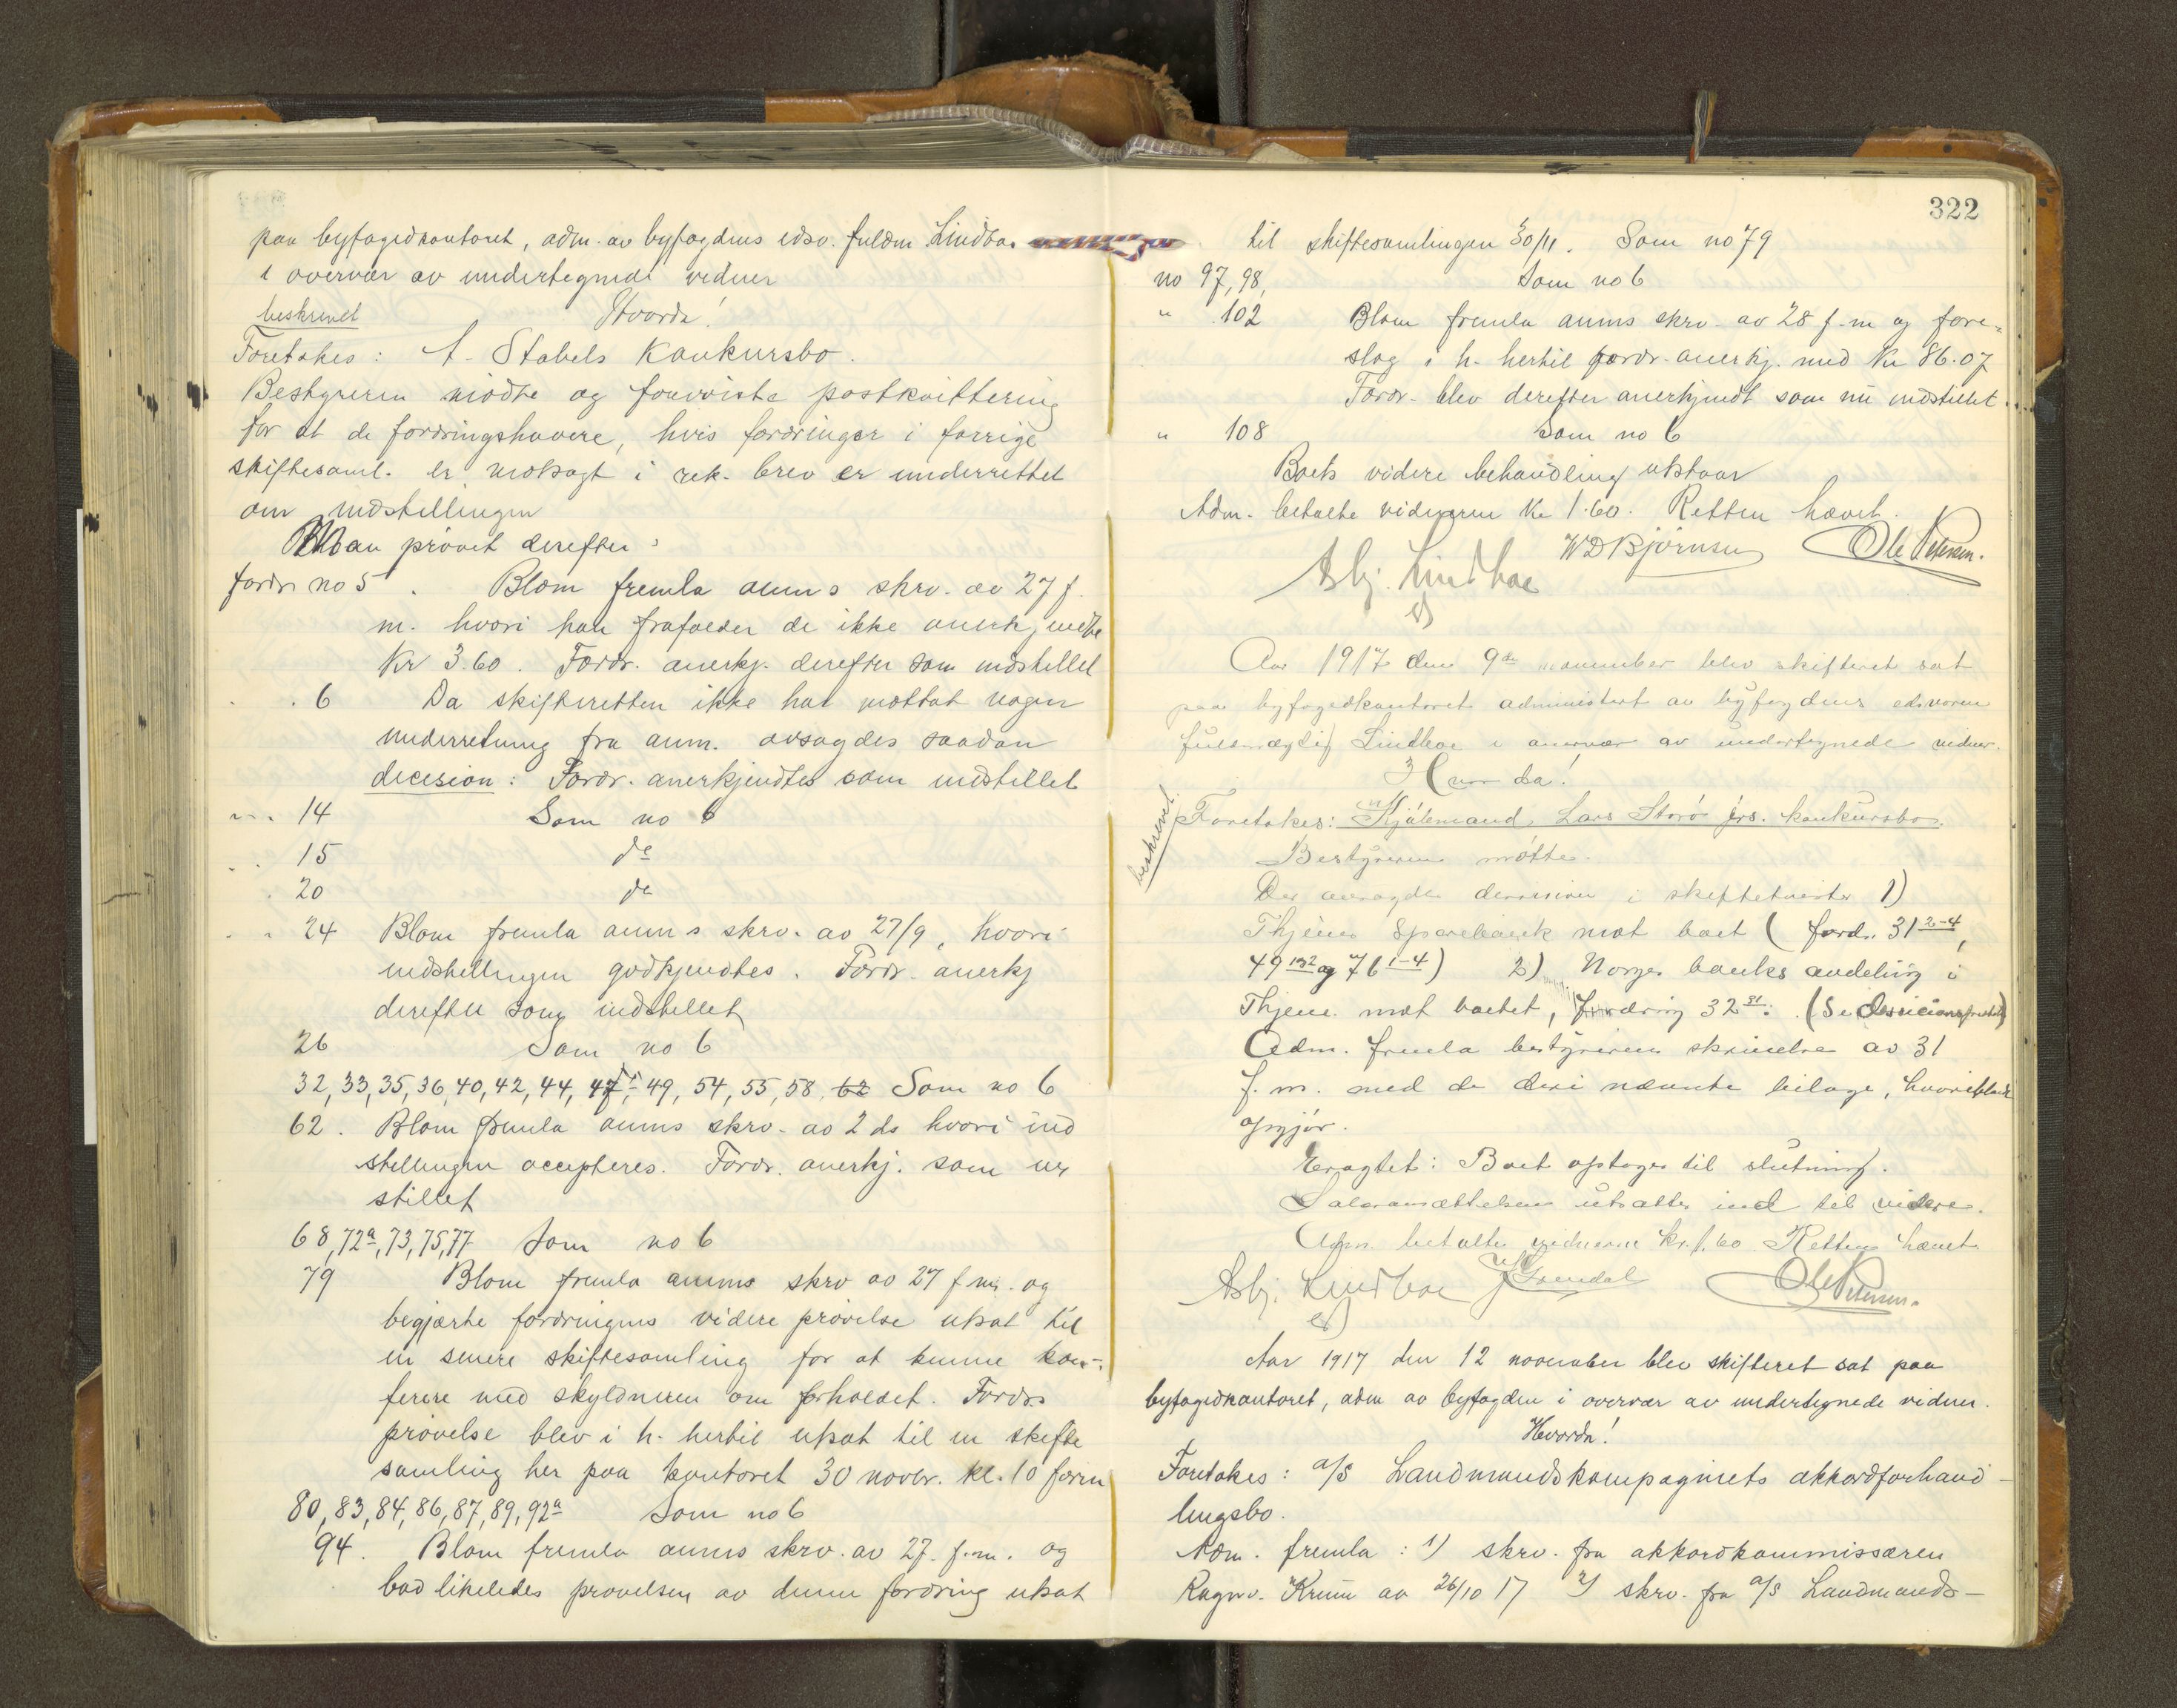 paa byfogedkontoret, adm. av byfogdens edsv. fuldm Lindboe
i overvær av undertegnede vidner
beskrevet Hvorda!
Foretokes: A. Stabels Konkursbo.
Bestyreren mødte og foreviste postkvittering
for at de fordringshavere, hvis fordringer i forrige
skiftesaml. er motsagt i rek. brev er underrettet
om indstillingen
Man prøvet derefter:
fordr. no 5. Blom fremla anms skrv. av 27 f.
m. hvori han frafalder de ikke anerkjendte
Kr 3.60. Fordr. anerkj. derefter som indstillet
" 6 Da skifteretten ikke har mottat nogen
underretning fra anm. avsagdes saadan
decision: Fordr. anerkjendtes som indstillet
" 14 Som no 6
" 15 do
" 20 do
" 24 Blom fremla anms skrv. av 27/9, hvori
indstillingen godkjendtes. Fordr. anerkj
derefter som indstillet
26 Som no 6
32, 33, 35, 36, 40, 42, 44, 47, 49, 54, 55, 58, 62 Som no 6
62. Blom fremla anms skrv. av 2 ds hvori ind
stillingen accepteres. Fordr. anerkj. som
stillet
68, 72a, 73, 75, 77 Som no 6
79 Blom fremla anms skrv av 27 f m. og
begjærte fordringens videre prøvelse utsat til
en senere skiftesamling for at kunne kon-
ferere med skyldneren om forholdet. Fordrs
prøvelse blev i h. hertil utsat til en skifte
samling her paa kontoret 30 novbr. kl. 10 form
80, 83, 84, 86, 87, 89, 92a Som no 6
94. Blom fremla anms skrv. av 27. f.m. og
bad likeledes prøvelsen av denne fordring utsat
322
til skiftesamlingen 30/11. Som no 79
no 97, 98, Som no 6
" 102 Blom fremla anms skrv. av 28 f.m og fore=
slog i h. hertil fordr. anerkj. med Kr 86.07
Fordr. blev derefter anerkjendt som nu indstillet.
" 108 Som no 6
Boets videre behandling utstaar
Adm. betalte vidnerne Kr 1.60. Retten hævet.
Asbj. Lindboe WD Bjørnsen Ole Petersen.
Aar 1917 den 9de november blev skifteret sat
paa byfogedkontoret administrert av byfogdens edsvoren
fuldmægtig Lindboe i overvær av undertegnede vidner.
Hvorda!
beskrevet
Foretokes: Kjøbmand Lars Storø jrs. konkursbo.
Bestyreren møtte.
Der avsagdes decision i skiftetvister 1)
Thjems Sparebank mot boet ( ford. 31 2-4,
49 1og2 og 76 1-4) 2) Norges banks avdeling i
Thjem mot boet, fordring 32
Adm. fremla bestyrerens skrivelse av 31
f. m. med de deri nævnte bilage, hvoriblandt
opgjør.
Eragtet: Boet optages til slutning.
Salæransættelsen utsattes ind til videre.
Adm. betalte vidnerne kr. 1.60 Retten hævet
Asbj. Lindboe Ole Petersen.
Aar 1917 den 12 november blev skifteret sat paa
byfogedkontoret, adm av byfogden i overvær av undertegnede vidner.
Hvorda!
Foretokes: a/s Landmandskompagniets akkordforhand-
lingsbo.
Adm. fremla: 1) skrv. fra akkordkommissæren
Ragnv. Krum av 26/10 17 2) skrv. fra a/s Landmands-